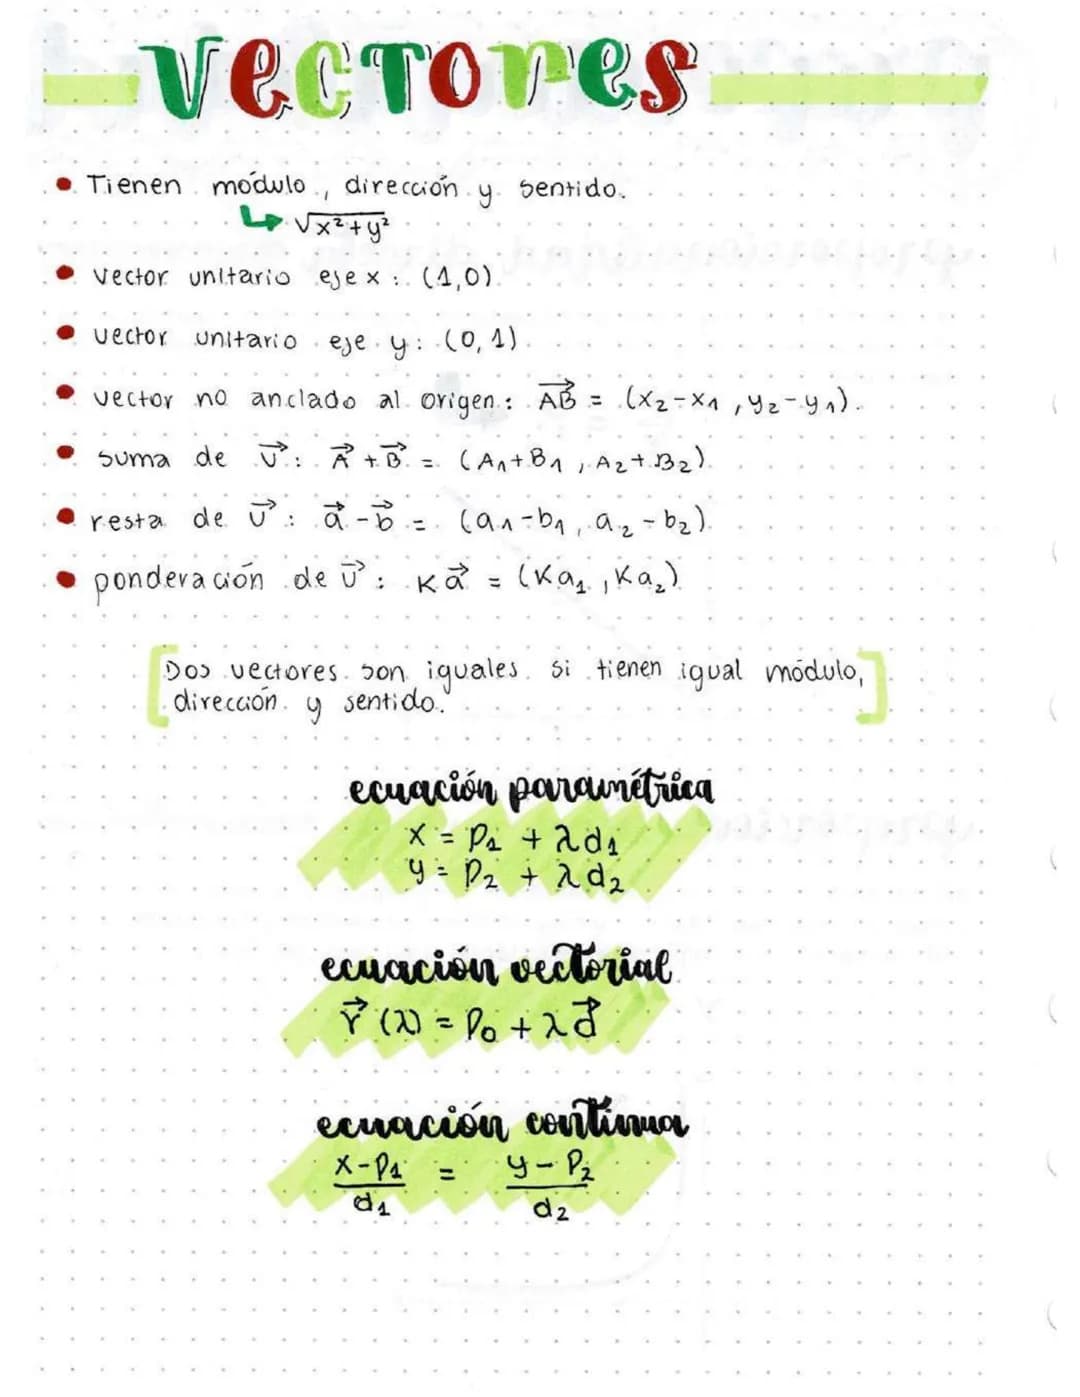 vectores
• Tienen módulo, dirección y sentido.
↳ √x²+y²
• vector unitario eje x: (1,0)
• vector unitario eje y: (0,1)
• vector no anclado al origen: AB⃗ = (x₂-x₁, y₂-y₁).
• suma de v⃗: A⃗ + B⃗ = (A₁+B₁, A₂+B₂).
• resta de v⃗: a⃗ - b⃗ = (a₁-b₁, a₂-b₂).
• ponderación de v⃗: Ka⃗ = (Ka₁, Ka₂)
[Dos vectores son iguales si tienen igual módulo,
dirección y sentido.]
ecuación paramétrica
x = P₁ + λd₁
y = P₂ + λd₂
ecuación vectorial
r⃗(λ) = P₀ + λd⃗
ecuación continua
x-P₁ = y-P₂
d₁ d₂